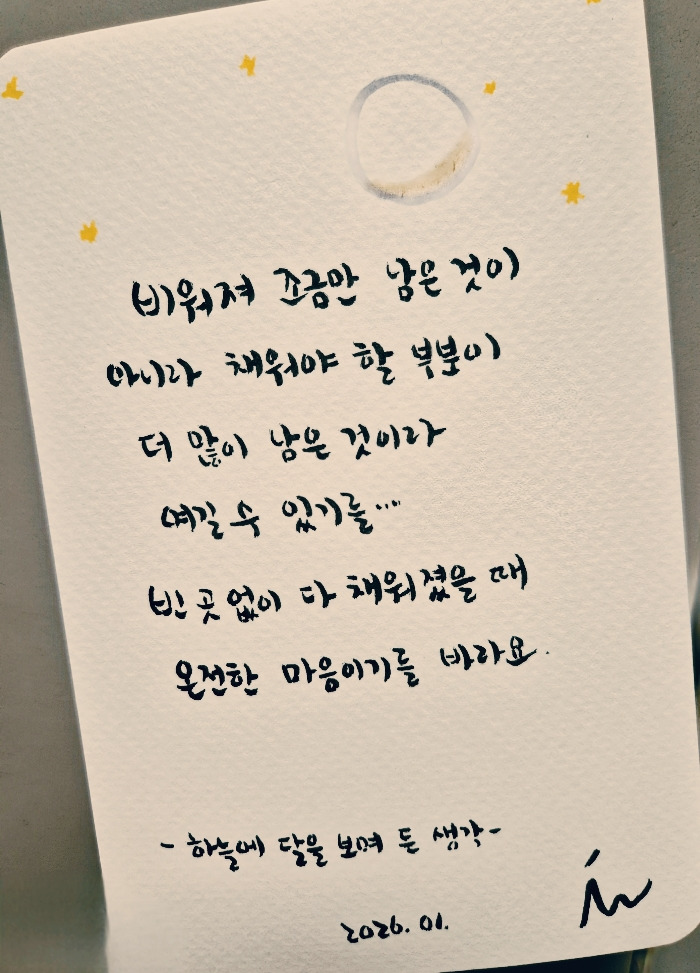 비워져 조금만 남은 것이
아니라 채워야 할 부분이
더 많이 남은 것이라
여길 수 있기를...
빈 곳 없이 다 채워졌을 때
온전한 마음이기를 바라요.
- 하늘에 달을 보며 든 생각 -
2026. 01.